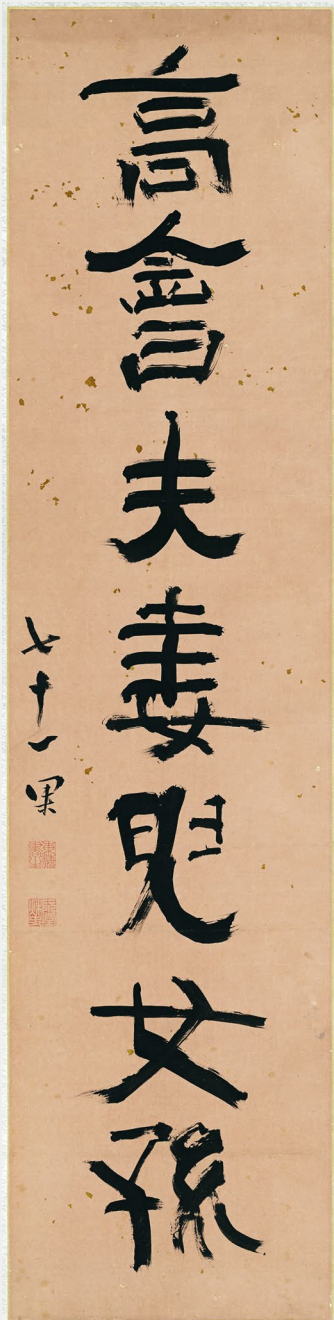 高會夫妻兒女孫
七十一果